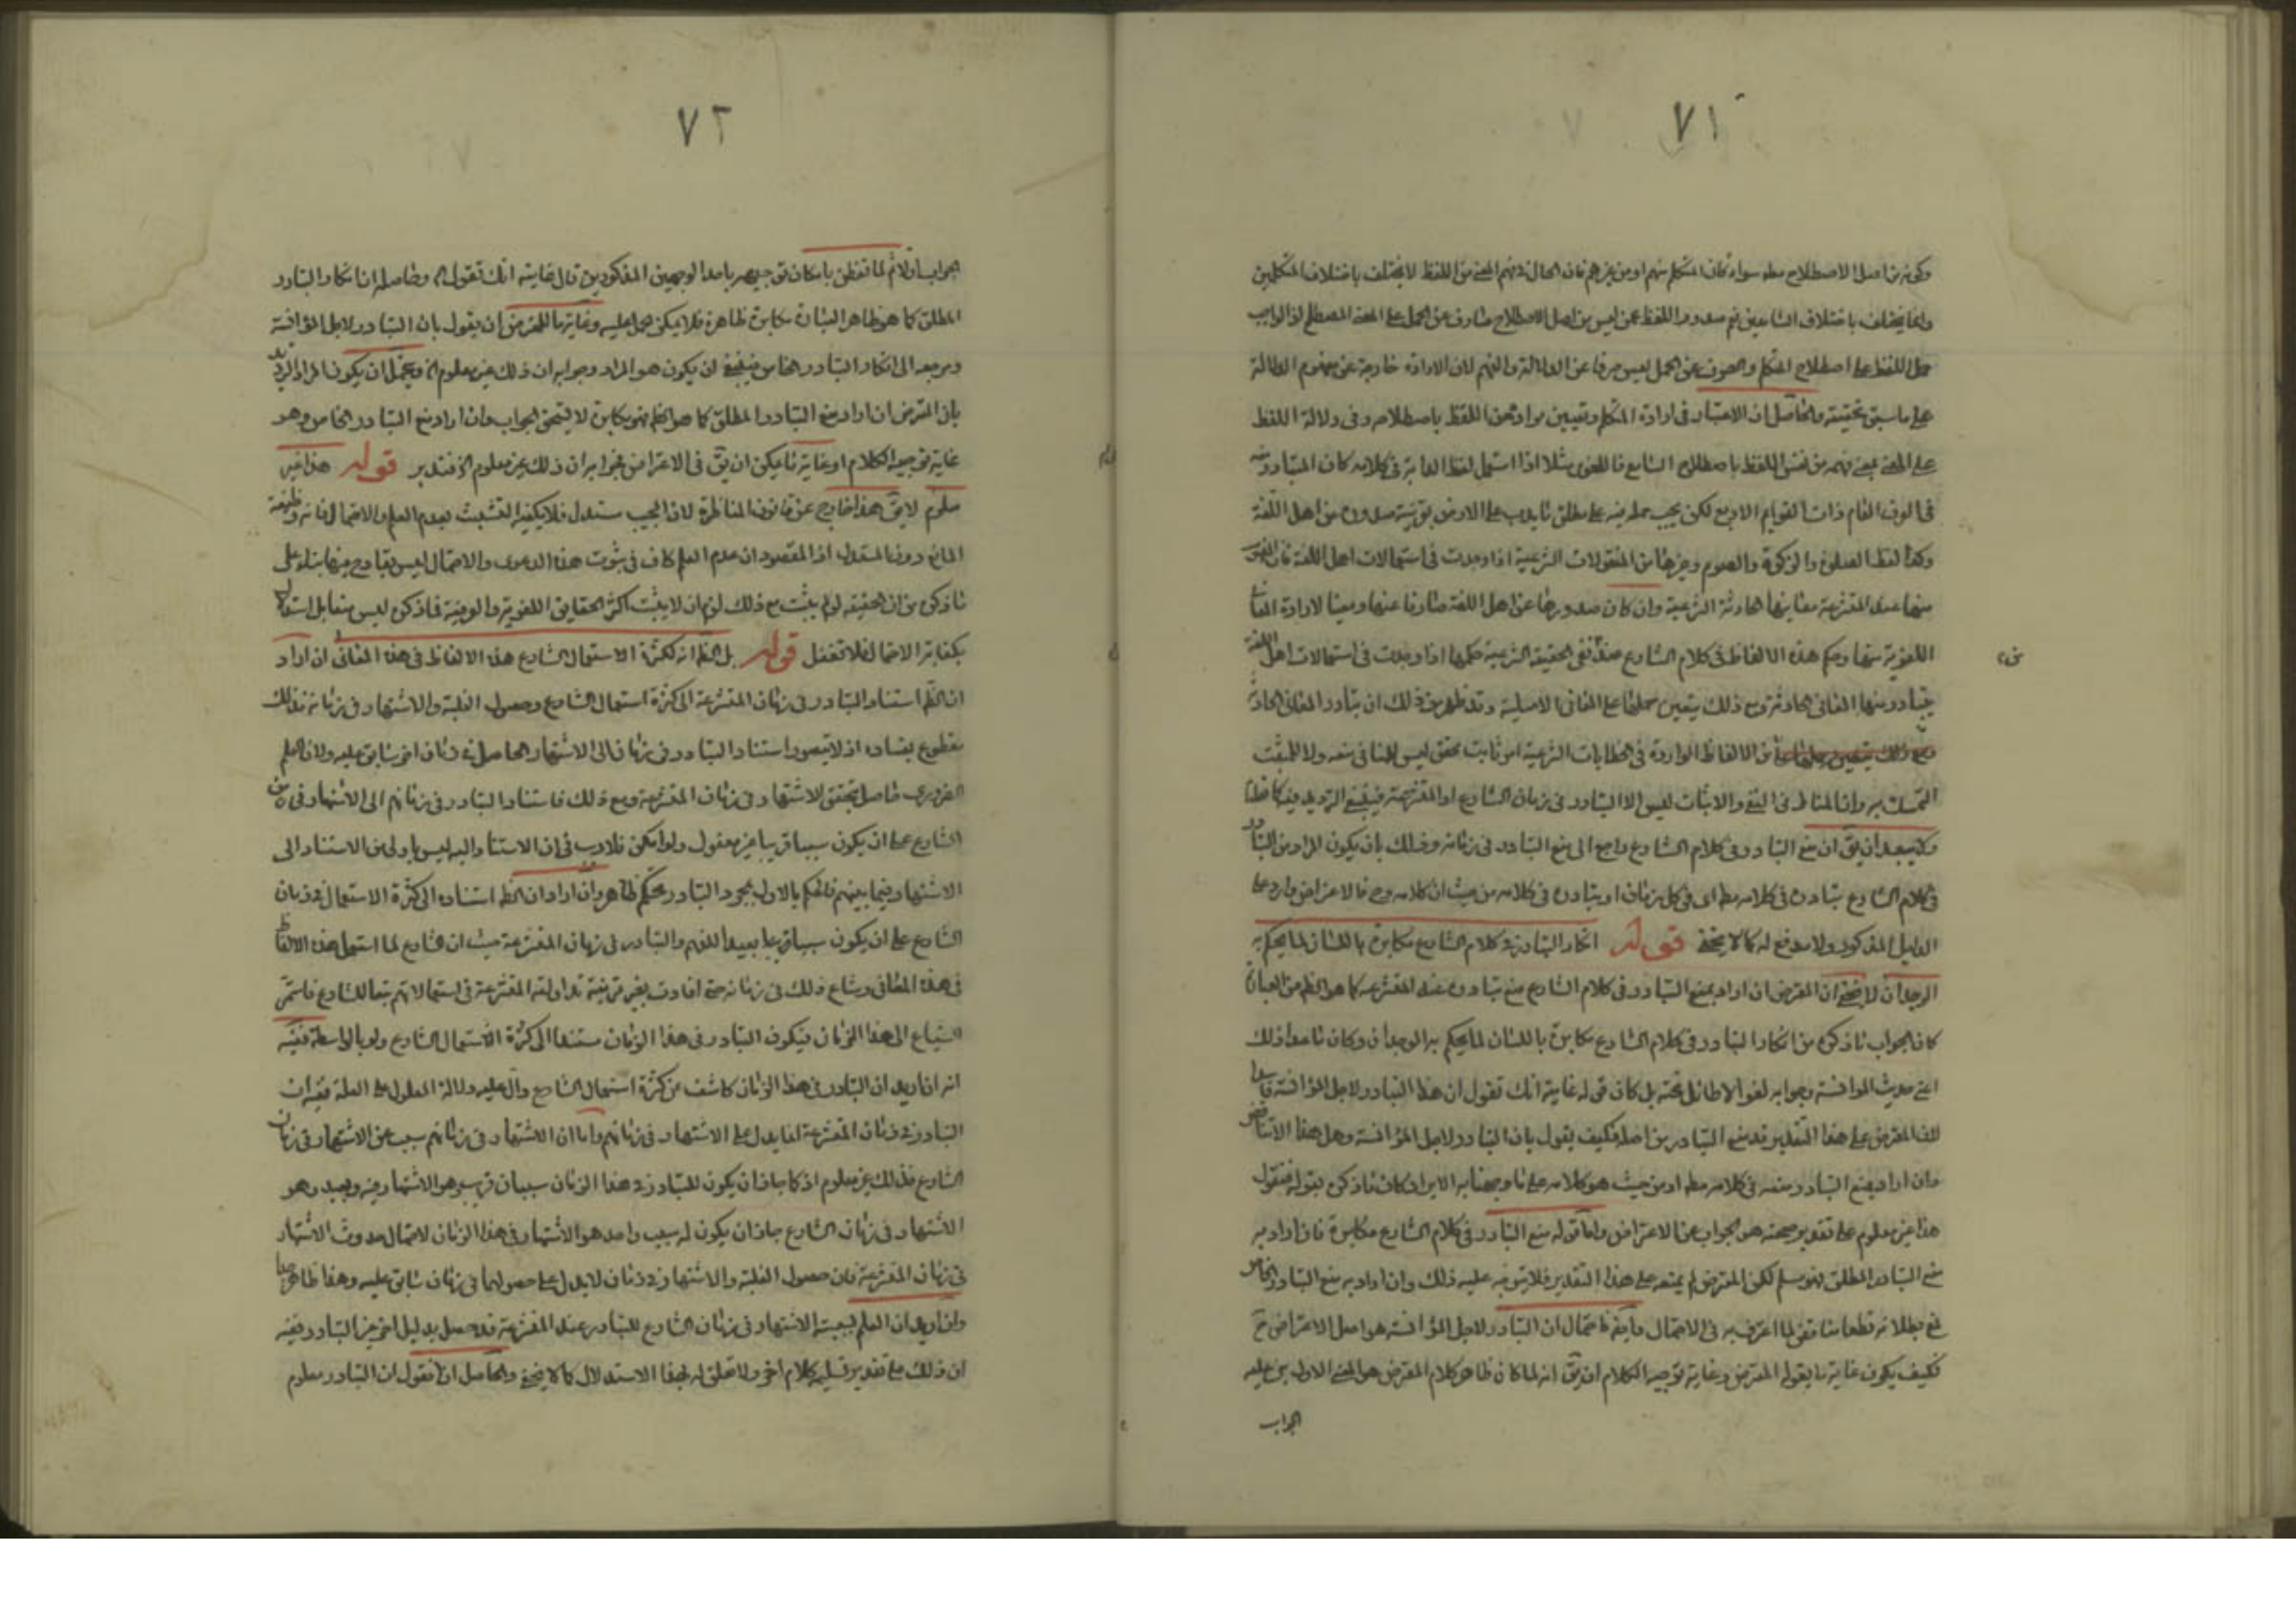 ٧١
وكونه من اهل الاصطلاح مطه سواء كان المتكلم منهم او من غيرهم فان الحال في فهم المعنى من اللفظ لا يختلف باختلاف المتكلمين
وانما يختلف باختلاف السامعين نعم صدور اللفظ عمن ليس من اهل الاصطلاح صارف عن الحمل على المعنى المصطلح اذ الواجب
حمل اللفظ على اصطلاح المتكلم والصرف عن الحمل ليس صرفا عن الدلالة والفهم لان الارادة خارجة عن مفهوم الدلالة
على ما سبق تحقيقه والحاصل ان الاعتبار في ارادة المتكلم وتعيين مراده من اللفظ باصطلاحه وفي دلالة اللفظ
على المعنى بمعنى فهمه من نفس اللفظ باصطلاح السامع فاللغوي مثلا اذا استعمل لفظ الدابة في كلامه كان المتبادر منه
في العرف العام ذات القوايم الاربع لكن يجب حمله منه على مطلق ما يدب على الارض بقرينة صدوره من اهل اللغة
وكذا لفظ الصلوة والزكوة والصوم وغيرها من المنقولات الشرعية اذا وجدت في استعمالات اهل اللغة فان المفهوم
منها عند المتشرعة معانيها الحادثة الشرعية وان كان صدورها عن اهل اللغة صارفا عنها ومعينا لارادة المعاني
اللغوية منها وحكم هذه الالفاظ في كلام الشارع عند نفي الحقيقة الشرعية حكمها اذا وجدت في استعمالات اهل اللغة
يتبادر منها المعاني الحادثة ومع ذلك يتعين حملها على المعاني الاصلية وقد ظهر من ذلك ان تبادر المعاني الحادثة
من الالفاظ الواردة في الخطابات الشرعية امر ثابت محقق ليس للنافي منعه ولا للمثبت
التمسك به وان المناط في النفي والاثبات ليس الا التبادر في زمان الشارع او المتشرعة فينبغي الترديد فيه
في كلام الشارع تبادره في كلامه مطه اى في كل زمان او تبادره في كلامه من حيث ان كلامه وح فالاعتراض وارد على
الدليل المذكور ولا مدفع له كما لا يخفى قوله انكار التبادر في كلام الشارع مكابرة باللسان لما يحكم به
الوجدان لا يخفى ان المعترض ان اراد بمنع التبادر في كلام الشارع منع تبادره عند المتشرعة كما هو الظ من العبارة
كان الجواب ما ذكره من انكار التبادر في كلام الشارع مكابرة باللسان لما يحكم به الوجدان وكان ما عدا ذلك
اعنى حديث المؤانسة وجوابه لغوا لا طائل تحته بل كان قوله غاية انك تقول ان هذا التبادر لاجل المؤانسة فاسدا
لان المعترض على هذا التقدير قد منع التبادر من اصله فكيف يقول بان التبادر لاجل المؤانسة وهل هذا الا تناقض
وان اراد بمنع التبادر منعه في كلامه مطه او من حيث هو كلامه على ما وجهنا به الايراد كان ما ذكره بقوله فنقول
هذا غير معلوم على تقدير صحته هو الجواب عن الاعتراض واما قوله منع التبادر في كلام الشارع مكابرة فان اراد به
منع التبادر المطلق فهو مسلم لكن المعترض لم يمنعه على هذا التقدير فلا يتوجه عليه ذلك وان اراد به منع التبادر الخاص
فمع بطلانه قطعا مناقض لما اعترف به في الاحتمال وايضا فاحتمال ان التبادر لاجل المؤانسة هو اصل الاعتراض ح
فكيف يكون غاية ما يقوله المعترض وغاية توجيه الكلام ان يق انه لما كان ظاهر كلام المعترض هو المعنى الاول بنى عليه
الجواب
٧٢
الجواب اولا ثم لما تفطن بامكان توجيهه باحد الوجهين المذكورين قال غايته انك تقول اه وحاصله ان انكار التبادر
المطلق كما هو ظاهر العبارة مكابرة ظاهرة فلا يمكن حمله عليه وغاية ما للمعترض ان يقول بان التبادر لاجل المؤانسة
ومرجعه الى انكار التبادر الخاص فينبغي ان يكون هو المراد وجوابه ان ذلك غير معلوم اه ويحتمل ان يكون المراد الترديد
بان المعترض ان اراد منع التبادر المطلق كما هو الظ فهو مكابرة لا يستحق الجواب وان اراد منع التبادر الخاص وهو
غاية توجيه الكلام او غاية ما يمكن ان يق في الاعتراض فجوابه ان ذلك غير معلوم اه فتدبر قوله هذا غير
معلوم لا يق هذا خارج عن قانون المناظرة لان المجيب مستدل فلا يكفيه التشبث بعدم العلم والاحتمال فانه وظيفة
المانع دون المستدل اذ المقصود ان عدم العلم كاف في ثبوت هذه الدعوى والاحتمال ليس بقادح فيها بناء على
ما ذكره من ان الحقيقة لو لم يثبت مع ذلك لزم ان لا يثبت اكثر الحقايق اللغوية والعرفية فما ذكره ليس في مقابل استدلال
بكفاية الاحتمال فلا تغفل قوله بل الظ انه لكثرة الاستعمال الشارع هذه الالفاظ في هذه المعاني ان اراد
ان الظ استناد التبادر في زمان المتشرعة الى كثرة استعمال الشارع وحصول الغلبة والاشتهار في زمانه فذلك
مقطوع بفساده اذ لا يتصور استناد التبادر في زمان الى الاشتهار الحاصل في زمان اخر سابق عليه ولان العلم
الضرورى حاصل بتحقق الاشتهار في زمان المتشرعة ومع ذلك فاستناد التبادر في زمانهم الى الاشتهار في زمن
الشارع على ان يكون سببا قريبا غير معقول ولو امكن فلا ريب في ان الاستناد اليه ليس باولى من الاستناد الى
الاشتهار فيما بينهم فالحكم بالاول بمجرد التبادر تحكم ظاهر وان اراد ان الظ استناده الى كثرة الاستعمال في زمان
الشارع على ان يكون سببا بعيدا للفهم والتبادر في زمان المتشرعة حيث ان الشارع لما استعمل هذه الالفاظ
في هذه المعاني وشاع ذلك في زمانه حتى افادت بغير قرينة تداولته المتشرعة في استعمالاتهم تبعا للشارع فاستمر
الشياع الى هذا الزمان فيكون التبادر في هذا الزمان مستندا الى كثرة الاستعمال الشارع ولو بالواسطة ففيه
انه ان اريد ان التبادر في هذا الزمان كاشف عن كثرة استعمال الشارع ودال عليه دلالة المعلول على العلة ففيه ان
التبادر في زمان المتشرعة انما يدل على الاشتهار في زمانهم واما ان الاشتهار في زمانهم سبب عن الاشتهار في زمان
الشارع فذلك غير معلوم اذ كما جاز ان يكون للتبادر في هذا الزمان سببان قريب وهو الاشتهار فيه وبعيد وهو
الاشتهار في زمان الشارع جاز ان يكون له سبب واحد هو الاشتهار في هذا الزمان لاحتمال حدوث الاشتهار
في زمان المتشرعة فان حصول الغلبة والاشتهار في زمان لا يدل على حصولهما في زمان سابق عليه وهذا ظاهر جدا
وان اريد ان العلم بسببية الاشتهار في زمان الشارع للتبادر عند المتشرعة قد حصل بدليل اخر غير التبادر ففيه
ان ذلك مع تقدير تسليمه كلام اخر ولا تعلق له بهذا الاستدلال كما لا يخفى والحاصل انا نقول ان التبادر معلوم